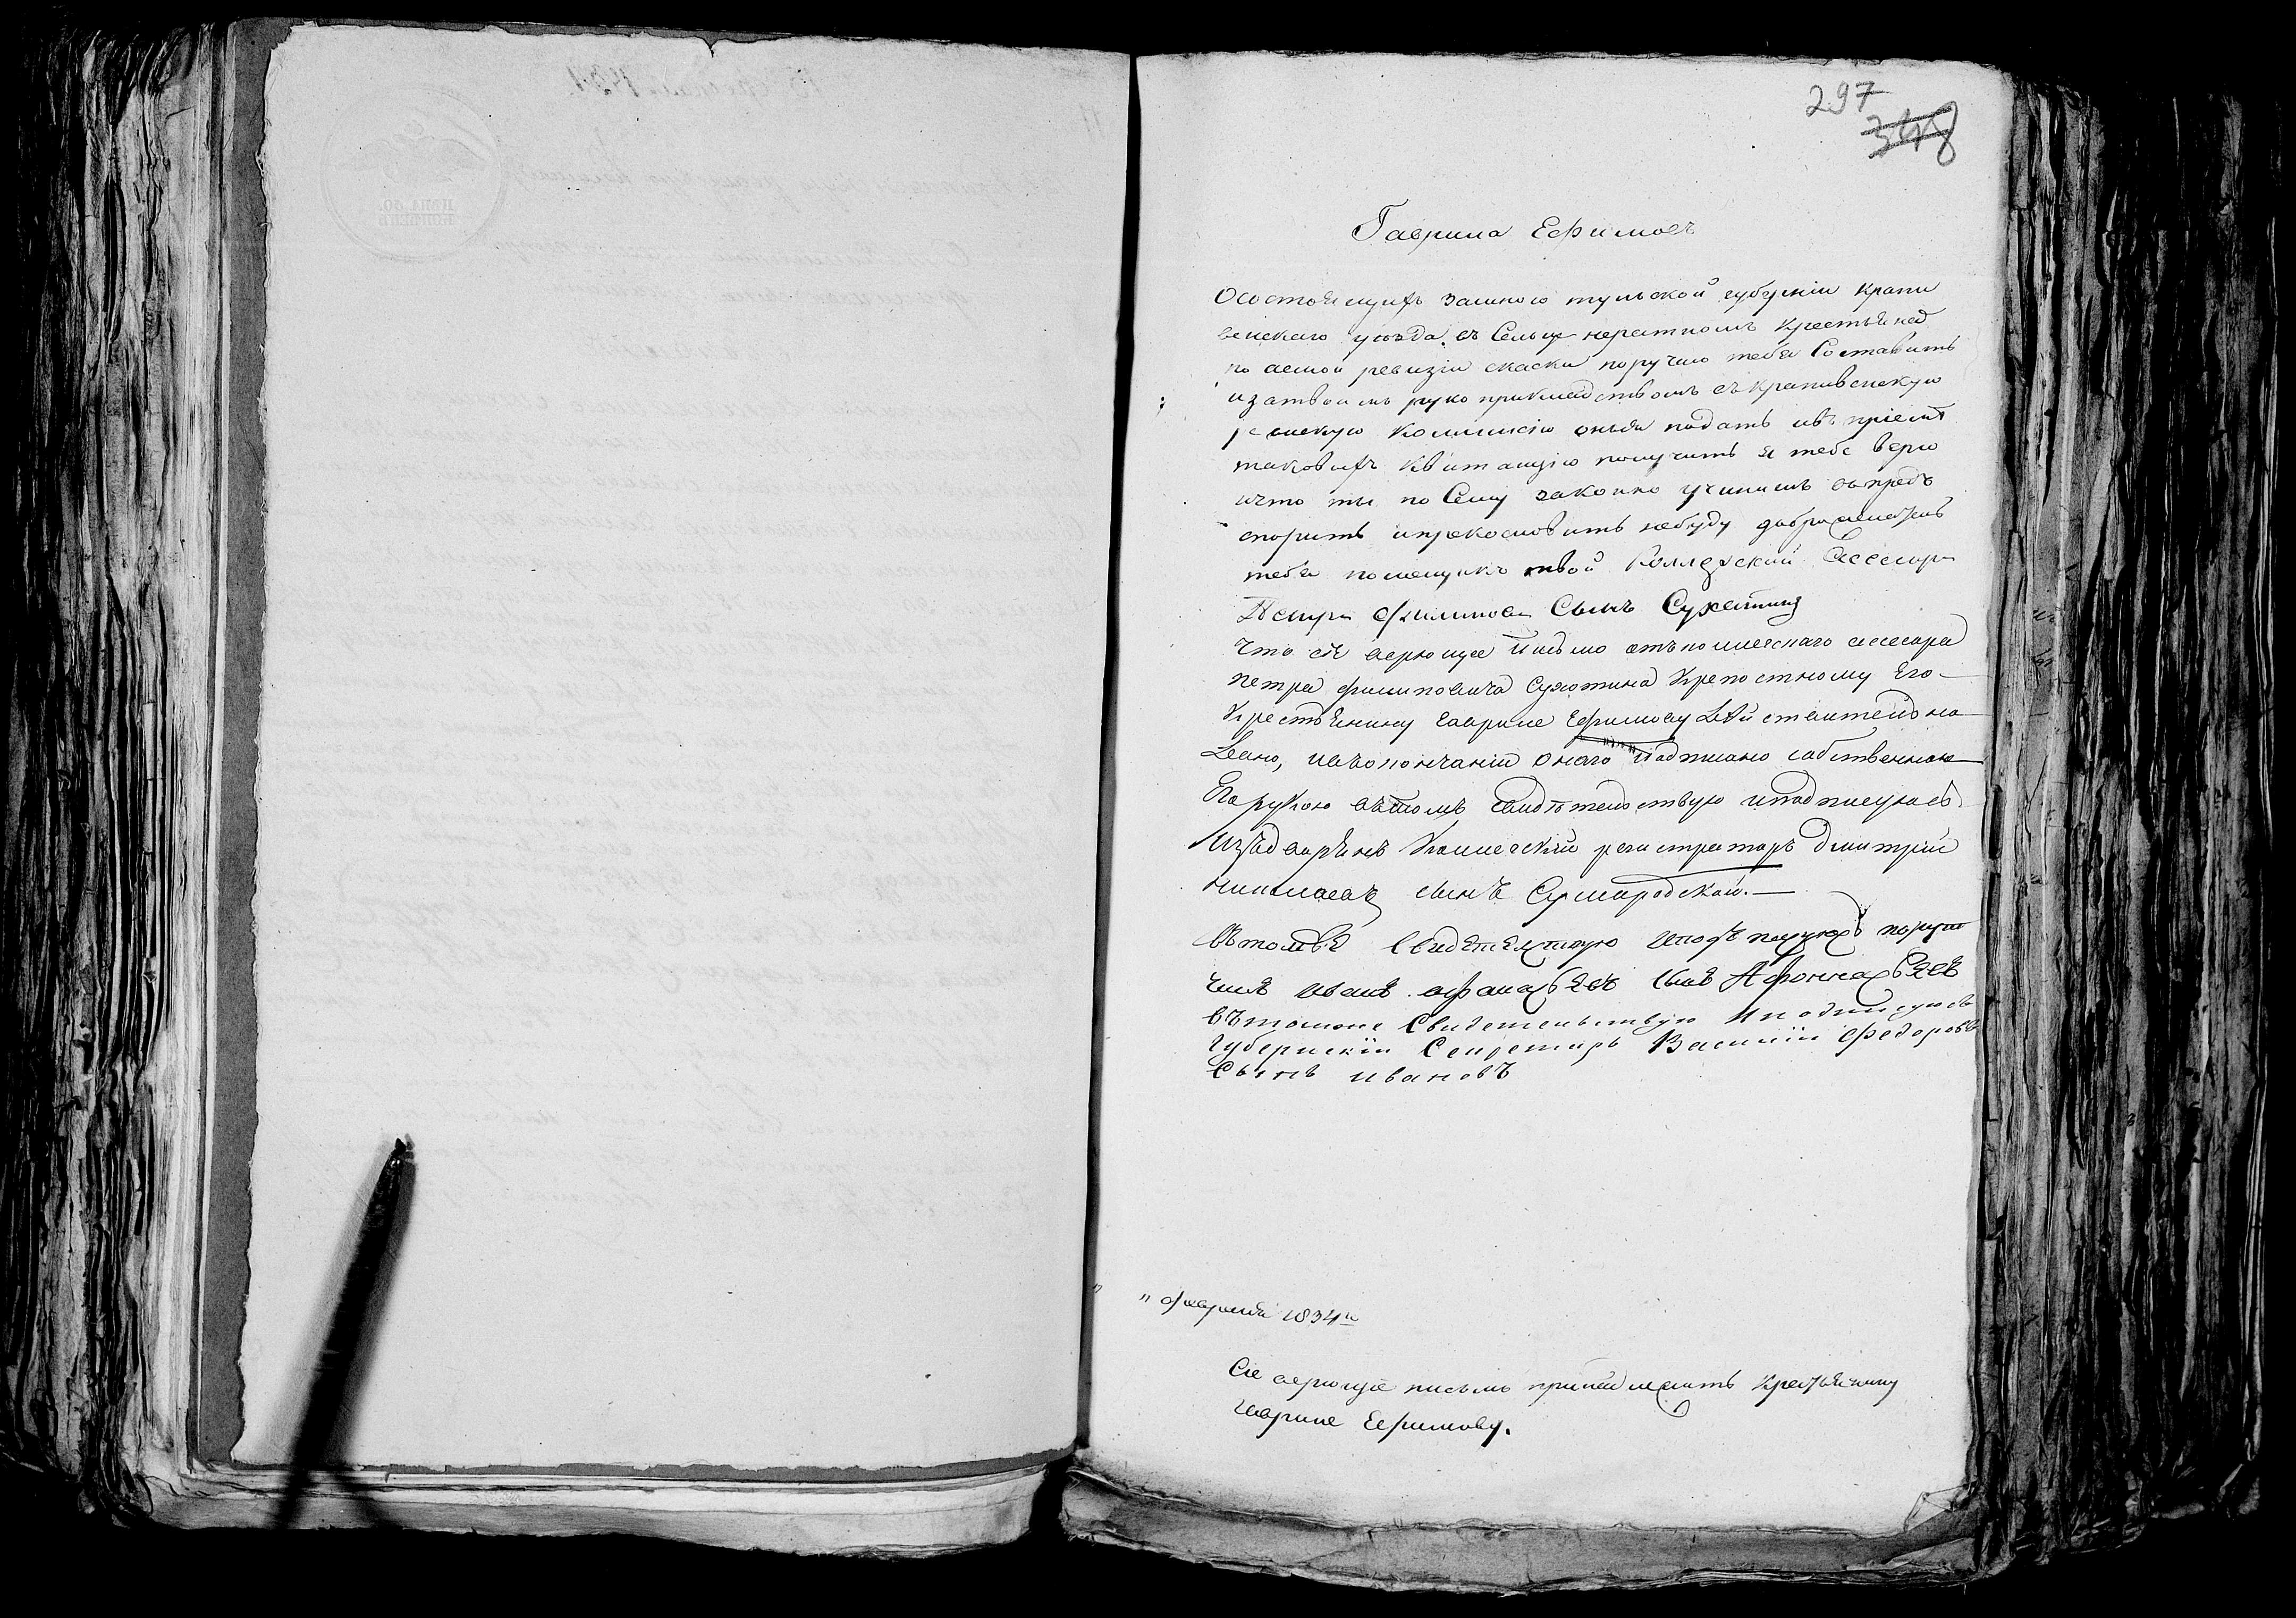 297
348
Гаврила Ефимовъ
Осостоящихъ замною тульской губерніи крапи
венскаго уѣзда. въ Сельце крестьянъ
по ревизіи скаски поручаю тебѣ Составить
изатвоимъ рукоприкладствомъ въ крапивенскую
комиссію оныя подать ивъ пріеме
таковыхъ квитанцію получить я тебе верю
ичто ты по Сему законно учинишь впредь
спорить ипрекословить небуду доброжелатель
тебѣ помещикъ твой Коллежский Асессоръ
Петръ Филиповъ Сынъ Сухатинъ
Что сіе верющее письмо отъколлежскаго асессора
петра филиповича Сухотина Крепостному Его
Крестьянину гавриле Ефимову действительно
дано, наокончаніи онаго подписано собственною
Его рукою вътомъ свидѣтельствую иподписуюсь
Изъдворянъ Коллежскій регистраторъ Дмитрий
николаевъ сынъ
вътомже свидетелствую иподъписуюсъ поруч
чикъ иванъ афанасьевъ сынъ
вътомже Свидетельствую Иподписуюсь
Губернскіи Секретарь Василіи Федоровъ
Сынъ ивановъ
" февраля 1834го
Сіе верющее письмо принадлежитъ Крестьянину
гавриле Ефимову.